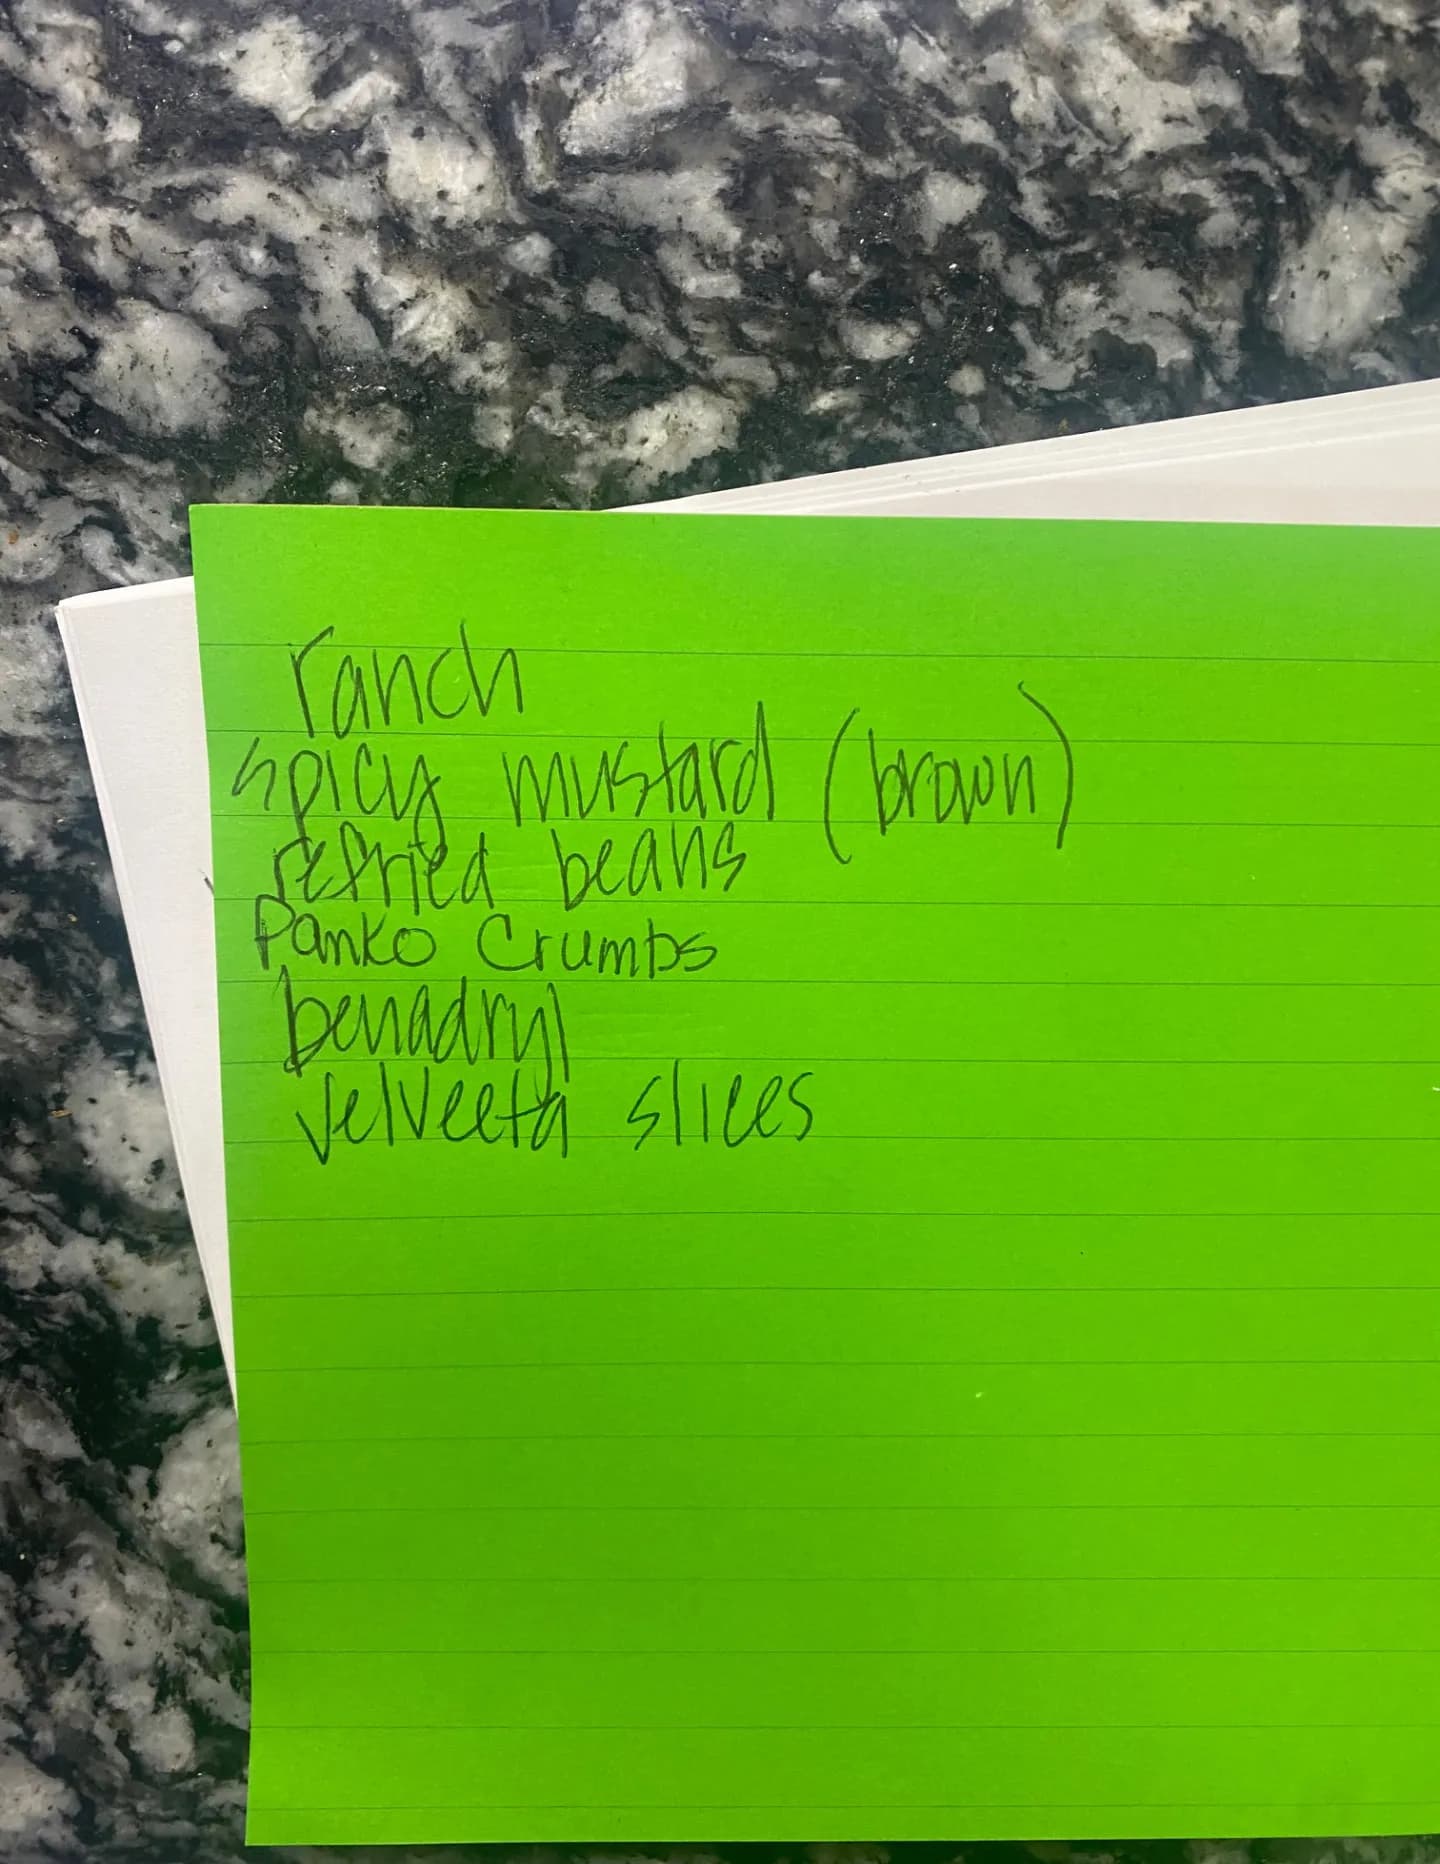 ranch
spicy mustard (brown)
refried beans
Panko Crumbs
benadryl
velveeta slices